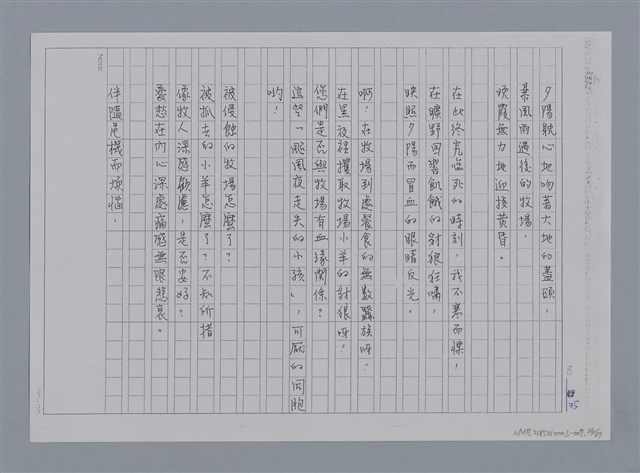 夕陽耽心地吻著大地的盡頭，
暴風雨過後的牧場，
晚霞無力地迎接黃昏。
在此終究臨死的時刻，我不寒而慄！
在曠野回響飢餓的豺狼狂嘯，
映照夕陽而冒血的眼睛反光。
啊！在牧場到處聚食的無數族呀！
在黑夜裡攫取牧場小羊的豺狼呀！
您們是否與牧場有血緣關係？
這些「颱風夜走失的小孩」，可厭的同胞
喲！
被侵蝕的牧場怎麼了？
被抓去的小羊怎麼了？不知所措
像牧人深感顧慮，是否安好？
憂愁在內心深處痛感無限悲哀。
伴隨危機而煩惱，
Note
35